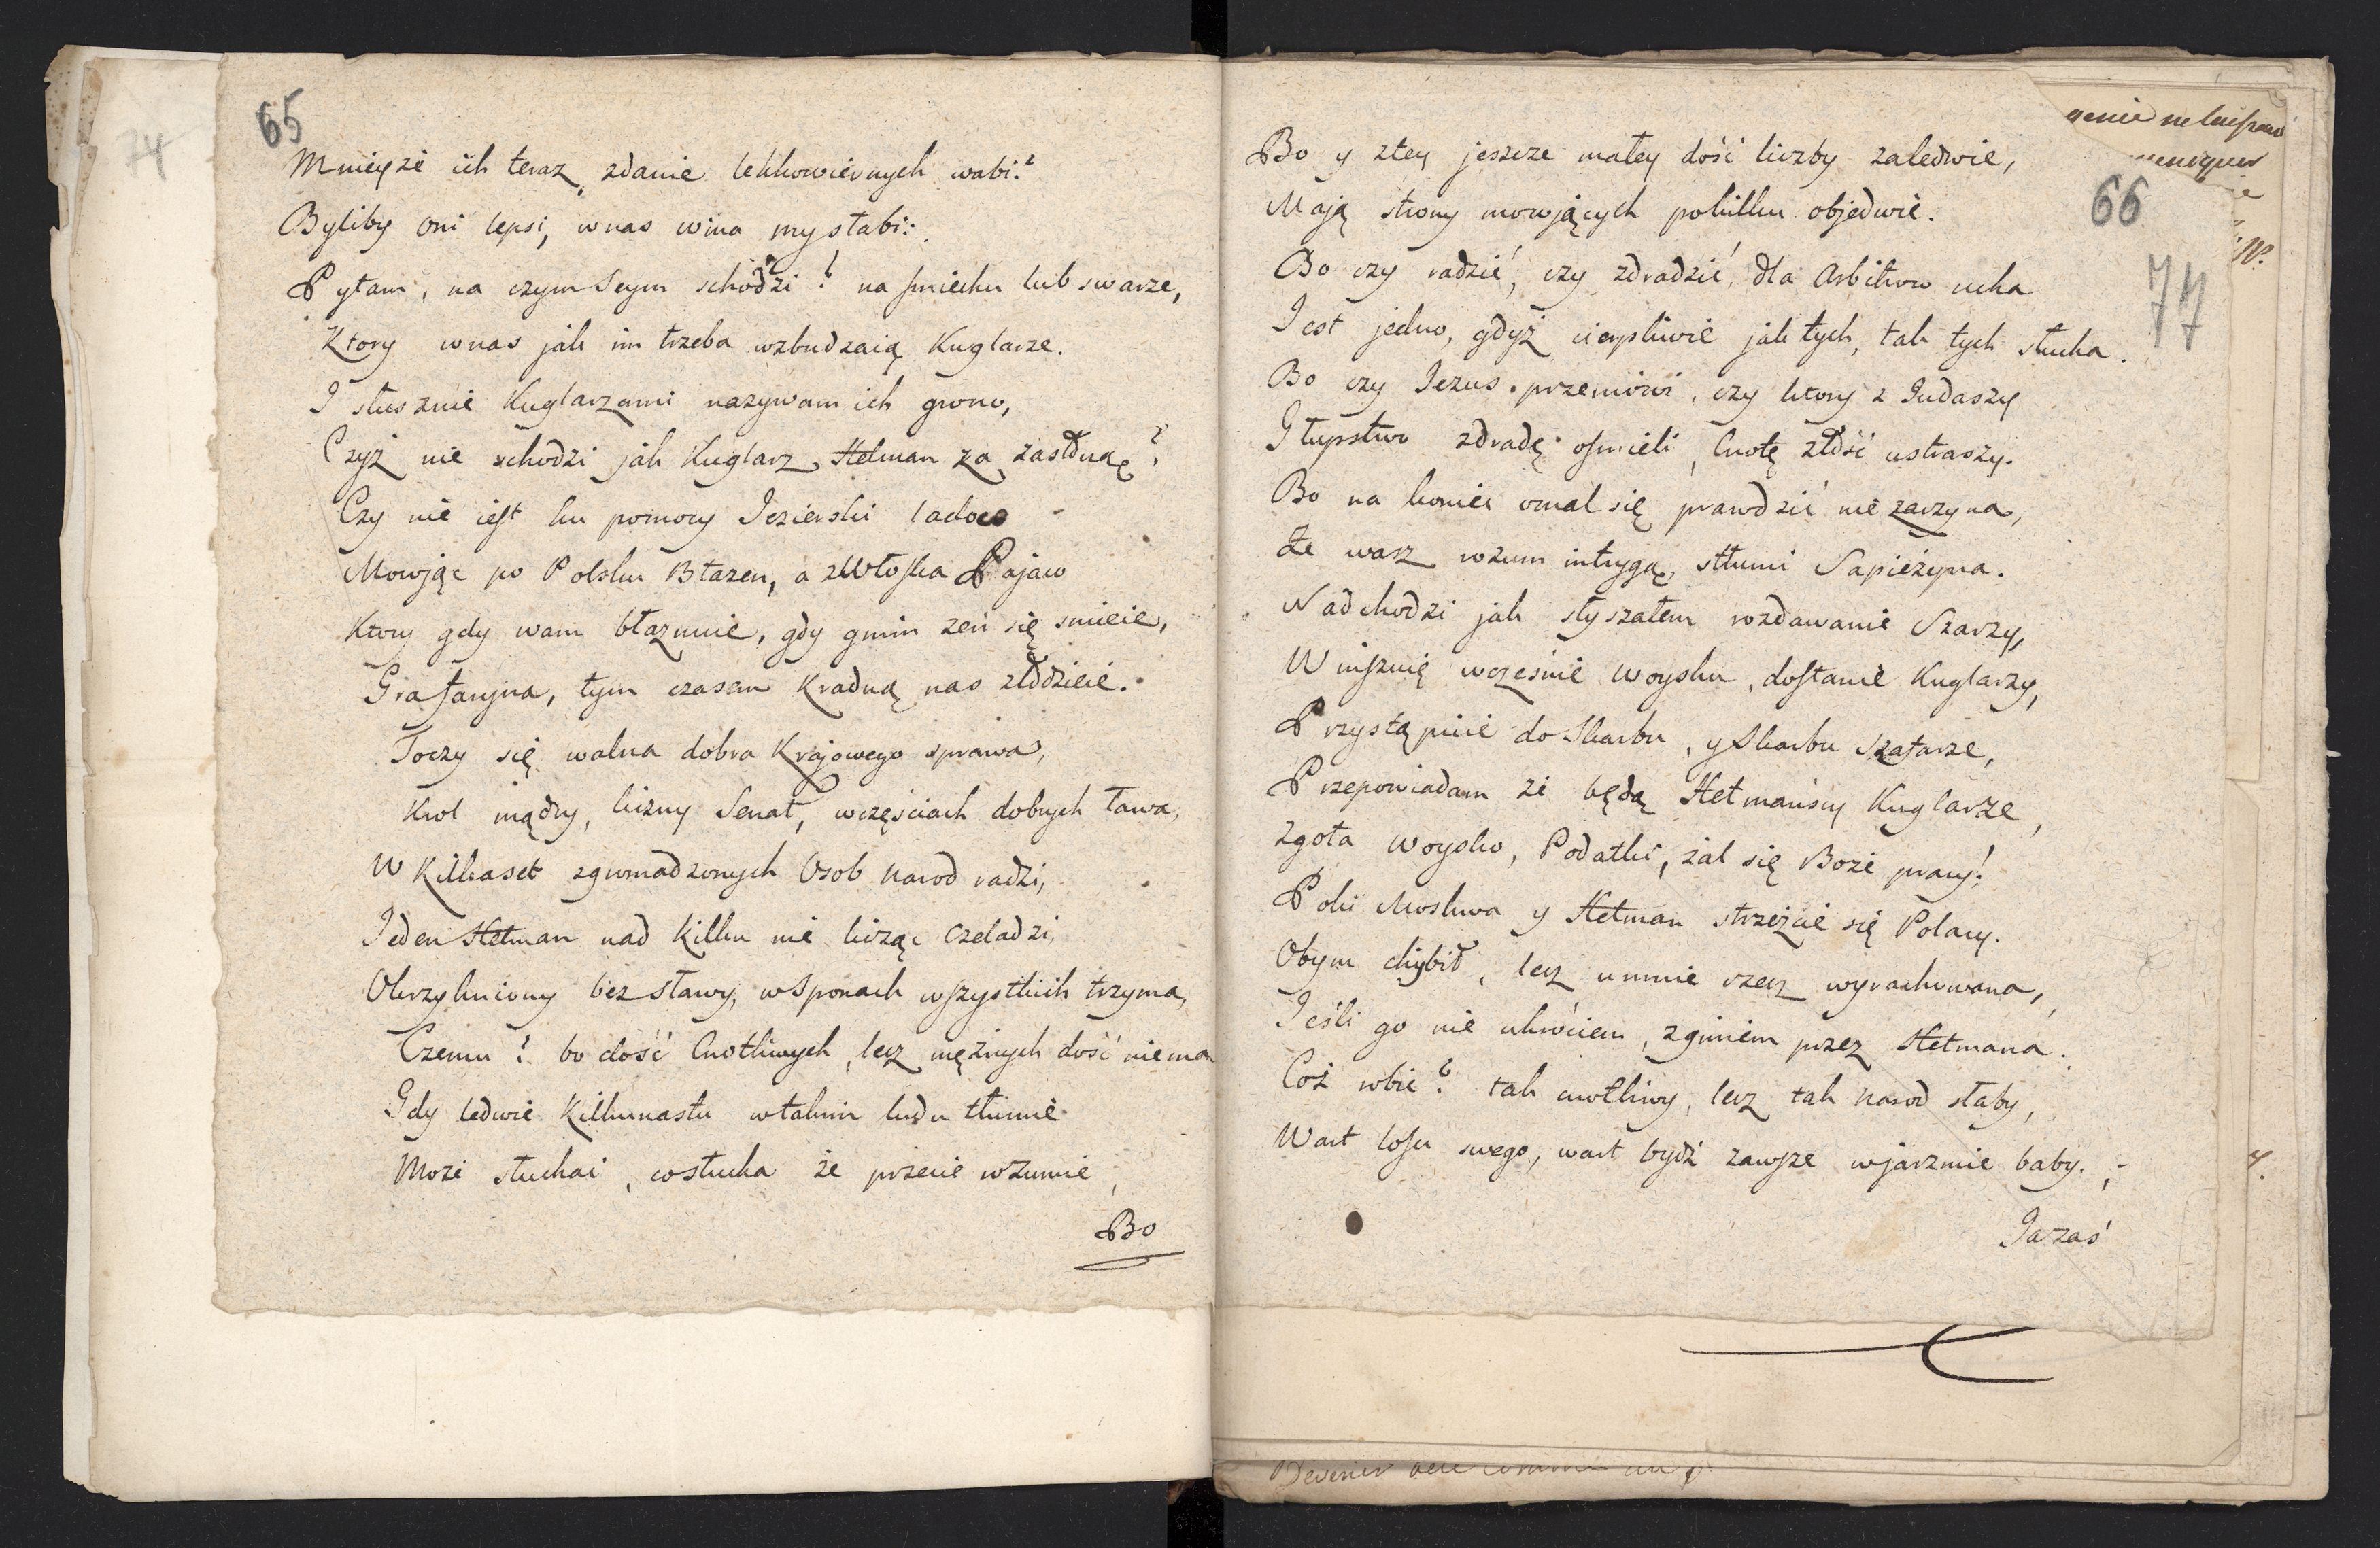 74
65
Mnieysze ich teraz zdanie lekkowiernych wabi?
Byliby oni lepsi, wnas wina my słabi:
Pytam, na czym Seym schodzi? na smiechu lub swarze,
Ktory wnas jak im trzeba wzbudzaią Kuglarze.
I słusznie Kuglarzami nazywam ich grono,
Czyż nie schodzi jak Kuglarz Hetman za zasłoną?
Czy nie iest ku pomocy Jezierski ladaco
Mowjąc po Polsku Błazen, a zWłoska Pajaco
Ktory gdy wam błaznuie, gdy gmin zeń się smieie,
Gra faryna, tym czasem Kradną nas złodzieie.
Toczy się walna dobra Krajowego sprawa,
Krol mądry, liczny Senat, wczęściach dobrych Ława,
W Kilkaset zgromadzonych Osob Narod radzi,
Jeden Hetman nad kilku nie licząc Czeladzi,
Okrzykniony bez sławy, wSponach wszystkich trzyma,
Czemu? bo dość Cnotliwych, lecz mężnych dość niema
Gdy ledwie Kilkunastu wtakim ludu tłumie
Może słuchać, co słucha że przecie rozumie,
Bo
66
77
Bo y ztey jeszcze małey dość liczby zaledwie,
Mają strony mowjących pokilku objedwie.
Bo czy radzić, czy zdradzić, dla Arbitrow ucha
Jest jedno, gdyż cierpliwie jak tych, tak tych słucha.
Bo czy Jezus przemówi, czy ktory z Judaszy
Głupstwo zdradę osmieli, Cnotę złość ustraszy.
Bo na koniec omal się prawdzić nie zaczyna,
Ze wasz rozum intrygą, stłumi Sapieżyna.
Nadchodzi jak słyszałem rozdawanie Szarzy,
Winszuię wcześnie woysku, dostanie Kuglarzy,
Przystąpicie do Skarbu, y Skarbu Szafarze,
Przepowiadam że będą Hetmańscy Kuglarze,
Zgoła woysko, Podatki, żal się Boże pracy!
Poki Moskwa y Hetman strzeżcie się Polacy.
Obym chybił, lecz u mnie rzecz wyrachowana,
Jeśli go nie ukróciem, zginiem przez Hetmana.
Coż robić? tak cnotliwy, lecz tak Narod słaby,
Wart losu swego, wart bydź zawsze wjarzmie baby.
Ja zaś